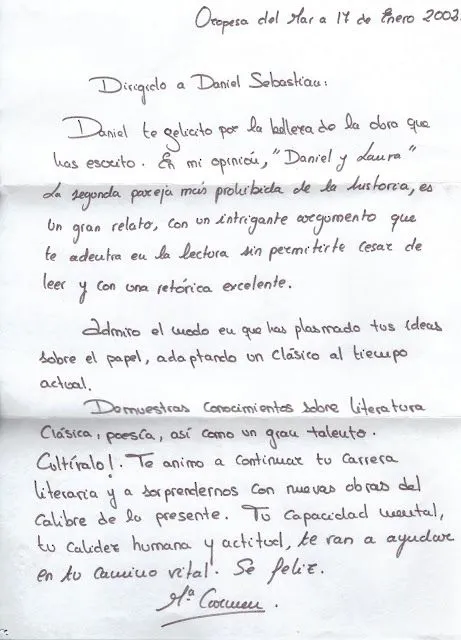 Oropesa del Mar a 17 de Enero 2003.
Dirigido a Daniel Sebastian:
Daniel te felicito por la belleza de la obra que
has escrito. En mi opinión, "Daniel y Laura"
La segunda pareja más prohibida de la historia, es
un gran relato, con un intrigante argumento que
te adentra en la lectura sin permitirte cesar de
leer y con una retórica excelente.
Admiro el modo en que has plasmado tus ideas
sobre el papel, adaptando un clásico al tiempo
actual.
Demuestras conocimientos sobre literatura
Clásica, poesía, así como un gran talento.
Cultívalo!. Te animo a continuar tu carrera
literaria y a sorprendernos con nuevas obras del
calibre de la presente. Tu capacidad mental,
tu calidez humana y actitud, te van a ayudar
en tu camino vital. Se feliz.
Mª Carmen.